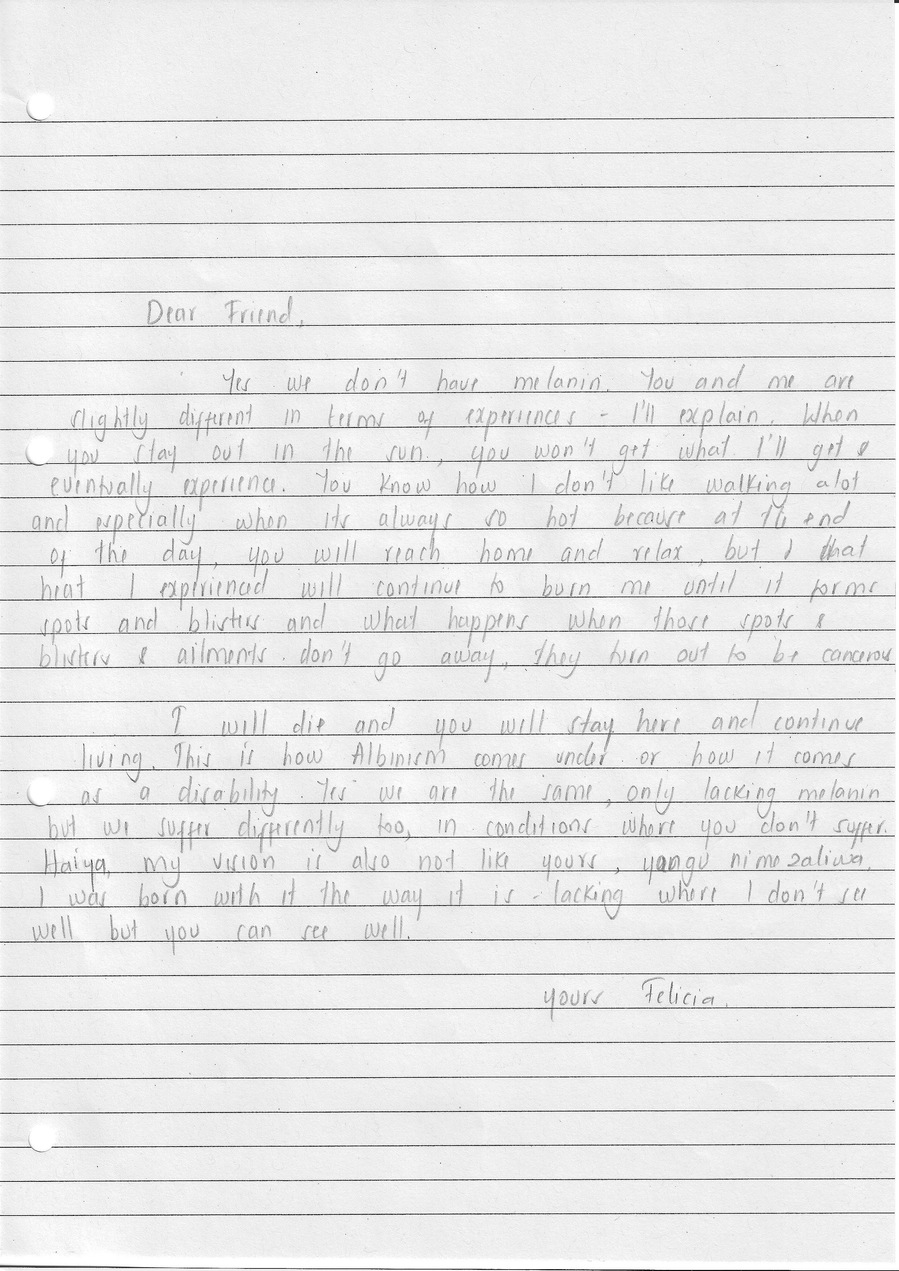 Dear Friend,
Yes we don't have melanin. You and me are
slightly different in terms of experiences - I'll explain. When
you stay out in the sun, you won't get what I'll get &
eventually experience. You know how I don't like walking alot
and especially when its always so hot because at the end
of the day, you will reach home and relax, but that
heat I experienced will continue to burn me until it forms
spots and blisters and what happens when those spots &
blisters & ailments don't go away, they turn out to be cancerous
I will die and you will stay here and continue
living. This is how Albinism comes under or how it comes
as a disability. Yes we are the same, only lacking melanin
but we suffer differently too, in conditions where you don't suffer.
Haiya, my vision is also not like yours, yangu nimezaliwa,
I was born with it the way it is - lacking where I don't see
well but you can see well.
yours Felicia.